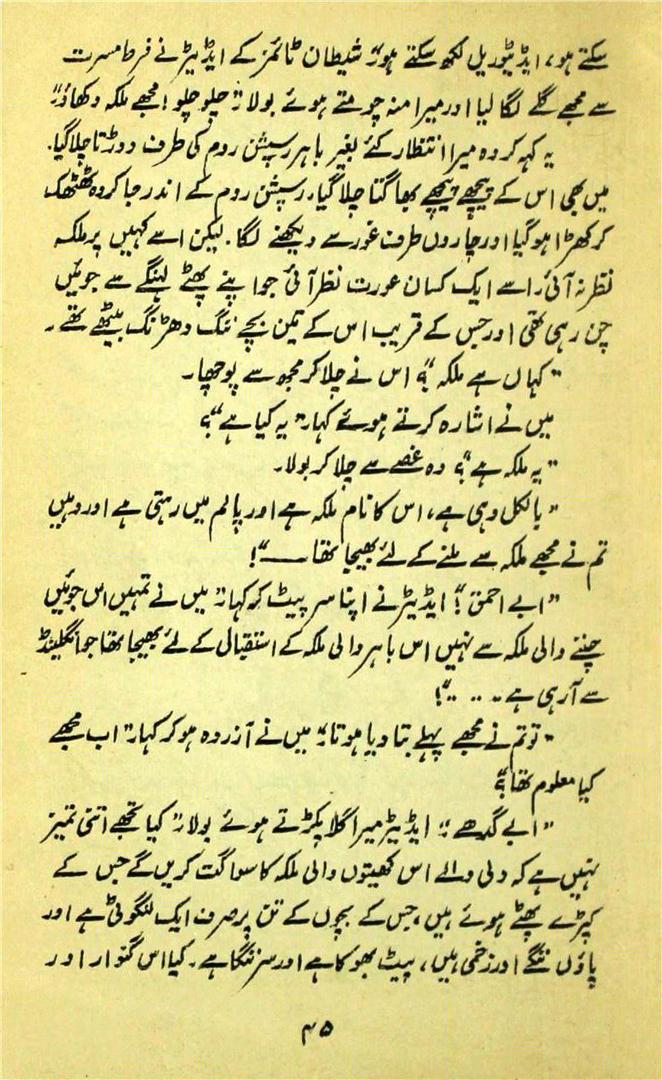 سکتے ہو، ایڈیٹوریل لکھ سکتے ہو" شیطان ٹائمز کے ایڈیٹر نے فرط مسرت
سے مجھے گلے لگا لیا اور میرا منہ چومتے ہوئے بولا "چلو چلو! مجھے ملکہ دکھاؤ"
یہ کہہ کر وہ میرا انتظار کئے بغیر باہر رسپشن روم کی طرف دوڑتا چلا گیا۔
میں بھی اس کے پیچھے پیچھے بھاگتا چلا گیا، رسپشن روم کے اندر جا کر وہ ٹھٹھک
کر کھڑا ہو گیا اور چاروں طرف غور سے دیکھنے لگا۔ لیکن اسے کہیں پر ملکہ
نظر نہ آئی، اسے ایک کسان عورت نظر آئی جو اپنے پھٹے لہنگے سے جوئیں
چن رہی تھی اور جس کے قریب اس کے تین بچے ننگ دھڑنگ بیٹھے تھے۔
"کہاں ہے ملکہ"؟ اس نے چلا کر مجھ سے پوچھا۔
میں نے اشارہ کرتے ہوئے کہا۔ "یہ کیا ہے"؟
"یہ ملکہ ہے"؟ وہ غصے سے چلا کر بولا۔
"بالکل وہی ہے، اس کا نام ملکہ ہے اور پالم میں رہتی ہے اور وہیں
تم نے مجھے ملکہ سے ملنے کے لئے بھیجا تھا ——"!
"ابے احمق"! ایڈیٹر نے اپنا سر پیٹ کر کہا "میں نے تمہیں اس جوئیں
چننے والی ملکہ سے نہیں اس باہر والی ملکہ کے استقبال کے لئے بھیجا تھا جو انگلینڈ
سے آ رہی ہے ۔۔۔۔"!
"تو تم نے مجھے پہلے بتا دیا ہوتا" میں نے آزردہ ہو کر کہا "اب مجھے
کیا معلوم تھا"؟
"ابے گدھے" ایڈیٹر میرا گلا پکڑتے ہوئے بولا "کیا تجھے اتنی تمیز
نہیں ہے کہ دلی والے اس کھیتوں والی ملکہ کا سواگت کریں گے جس کے
کپڑے پھٹے ہوئے ہیں، جس کے بچوں کے تن پر صرف ایک لنگوٹی ہے اور
پاؤں ننگے اور زخمی ہیں، پیٹ بھوکا ہے اور سر ننگا ہے۔ کیا اس گنوار اور
۴۵